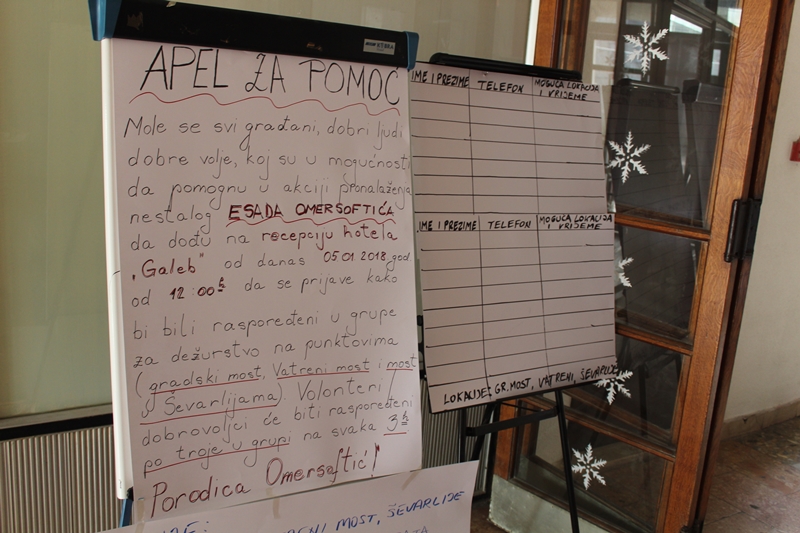 APEL ZA POMOĆ
Mole se svi građani, dobri ljudi
dobre volje, koj su u mogućnosti
da pomognu u akciji pronalaženja
nestalog ESADA OMERSOFTIĆA
da dođu na recepciju hotela
„Galeb" od danas 05.01.2018.god.
od 12:00h da se prijave kako
bi bili raspoređeni u grupe
za dežurstvo na punktovima
(gradski most, Vatreni most i most
u Ševarlijama). Volonteri
dobrovoljci će biti raspoređeni
po troje u grupi na svaka 3h
Porodica Omersoftić!
IME I PREZIME TELEFON MOGUĆA LOKACIJA
I VRIJEME
IME I PREZIME TELEFON MOGUĆA LOKACIJA
I VRIJEME
LOKACIJE: GR. MOST, VATRENI, ŠEVARLIJE
MOST, ŠEVARLIJE